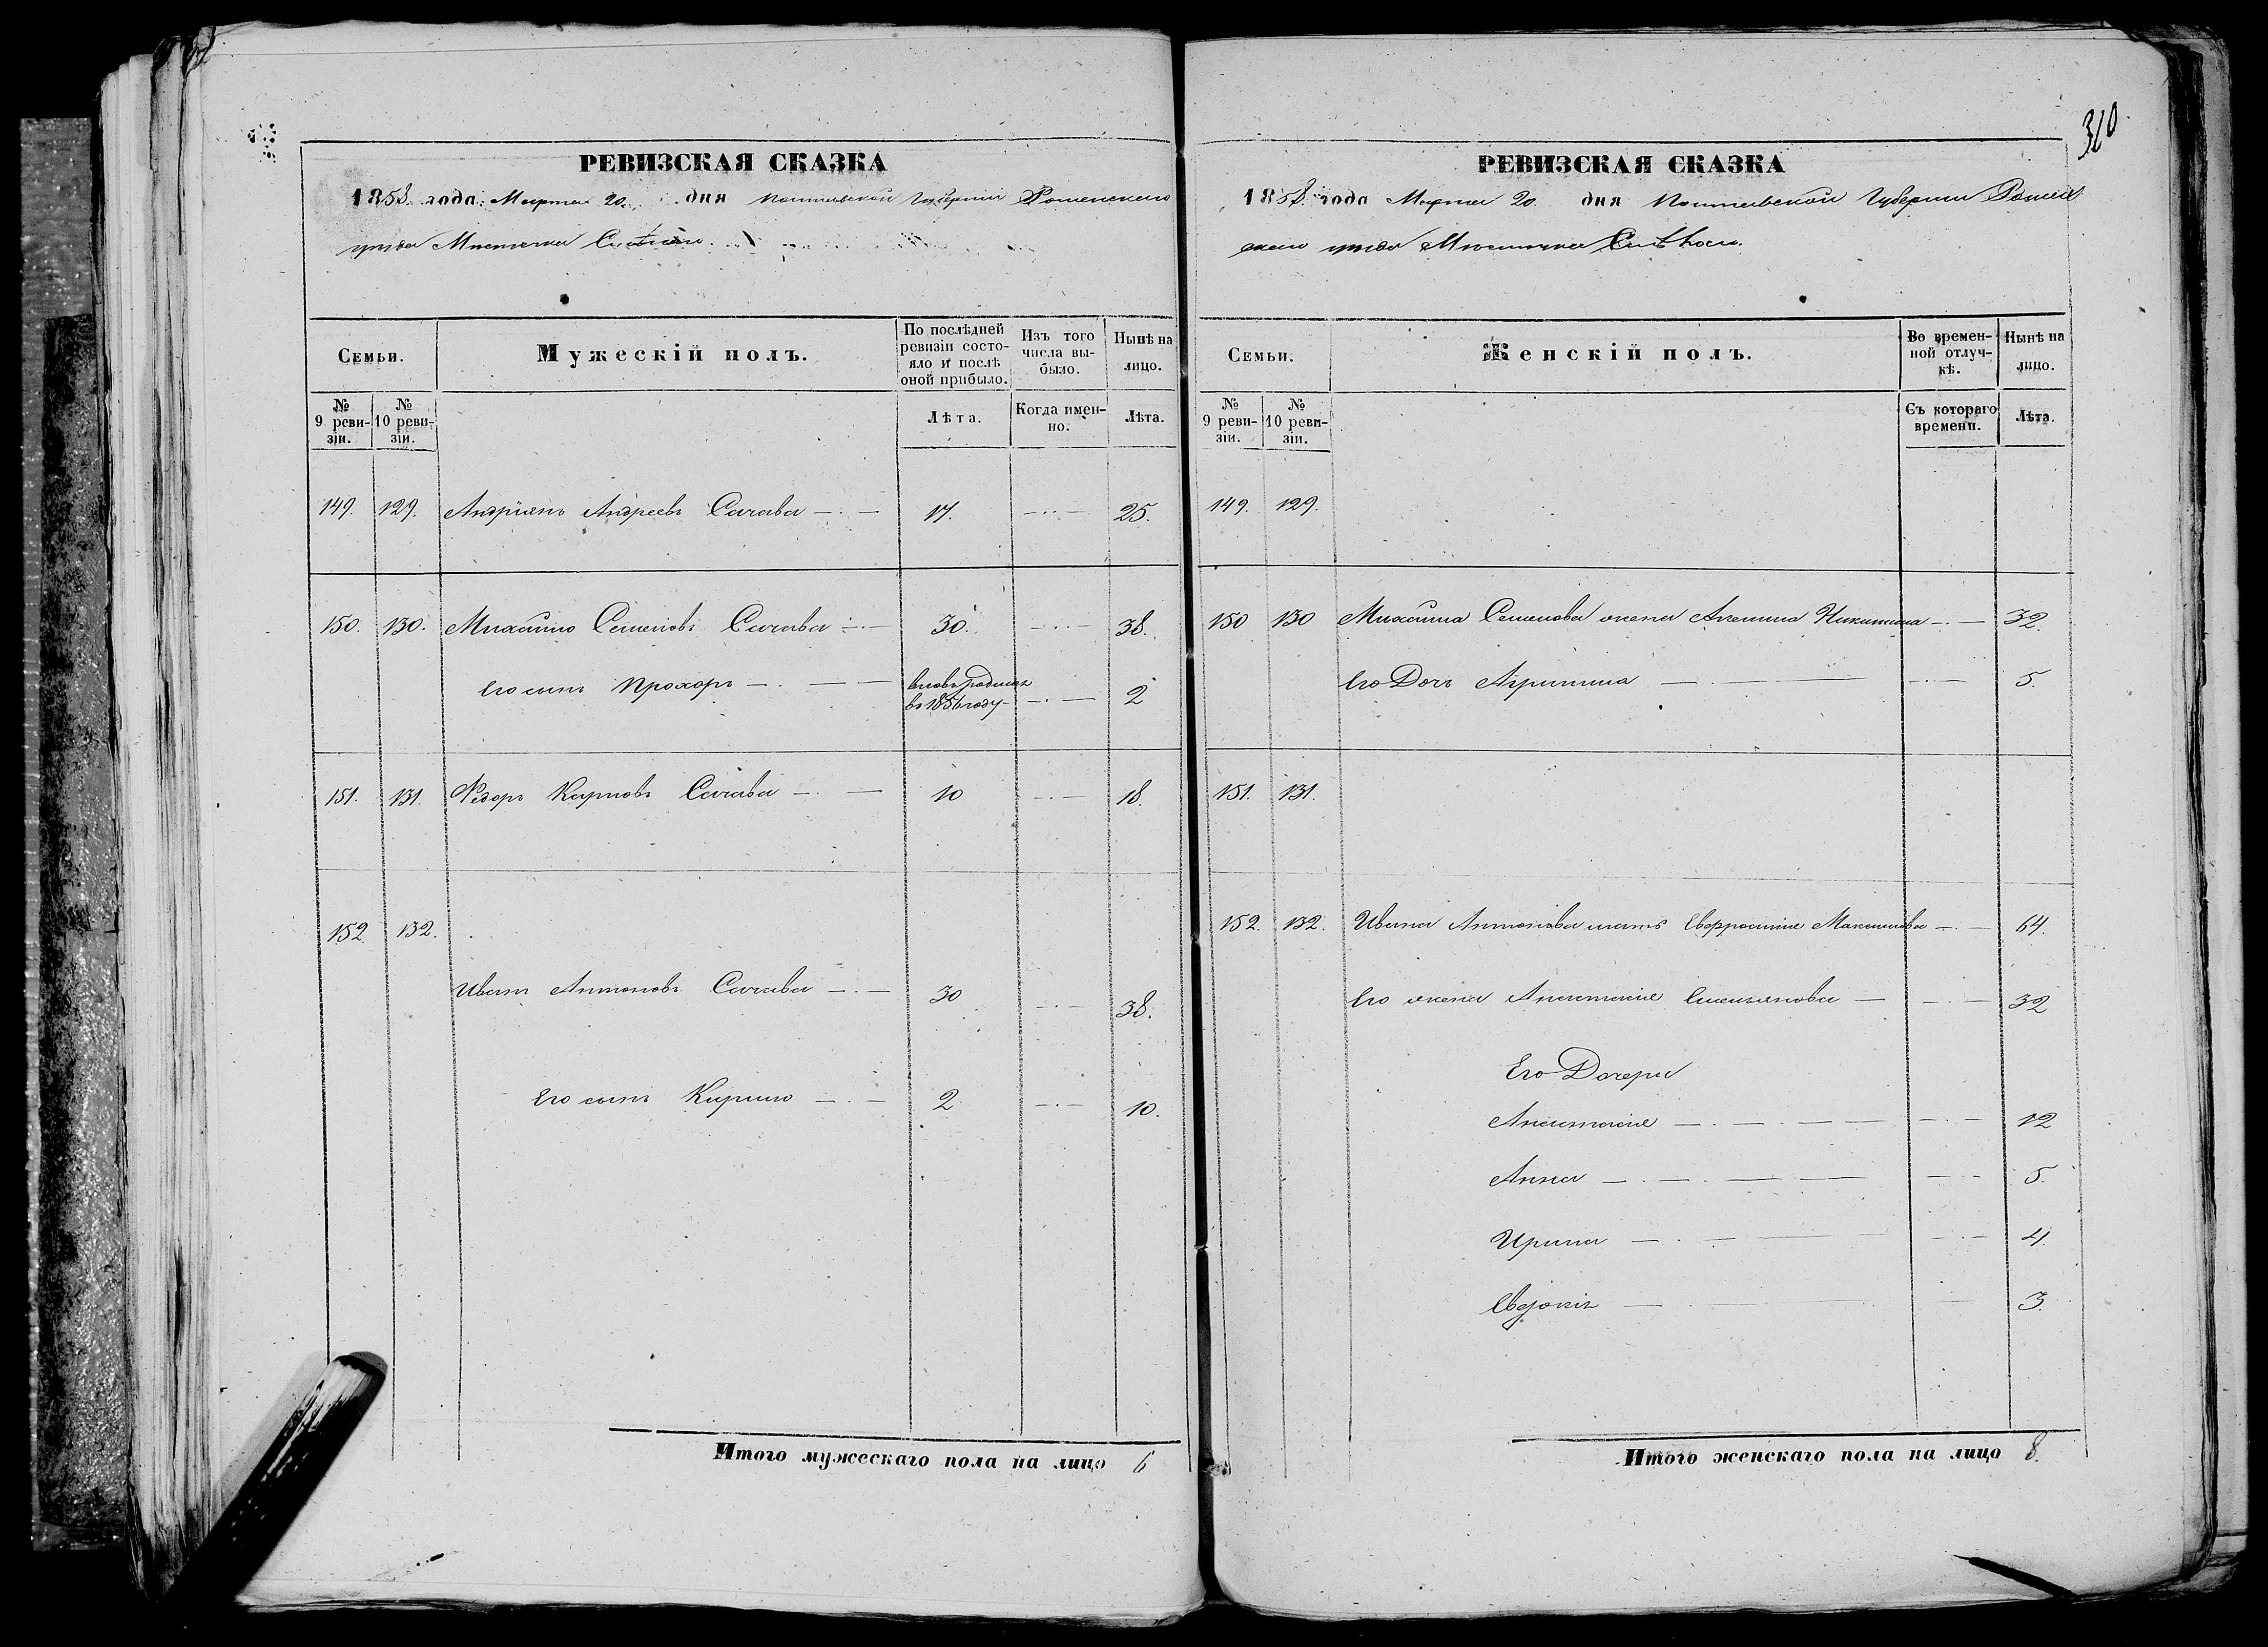 310
РЕВИЗСКАЯ СКАЗКА
1858 года Марта 20. дня Полтавской Губернии Роменскаго
уезда Местечка
Семьи.
Мужескій полъ.
По послѣдней ревизіи состояло и послѣ оной прибыло.
Изъ того числа выбыло.
Нынѣ на лицо.
№ 9 ревизіи.
№ 10 ревизіи.
Лѣта.
Когда именно.
Лѣта.
149. 129. Андріянъ Андреевъ Сачава — 17. — 25.
150. 130. Михайло Семеновъ Сачава — 30. — 38.
Его сынъ Прохоръ — вновь родился
въ 1856 году — 2
151. 131. Ѳедоръ Карповъ Сачава — 10 — 18.
152. 132.
Иванъ Антоновъ Сачава — 30 — 38.
Его сынъ Кирило — 2 — 10.
Итого мужескаго пола на лицо 6
РЕВИЗСКАЯ СКАЗКА
1858 года Марта 20. дня Полтавской Губернии Ромен
скаго уезда Местечка
Семьи.
Женскій полъ.
Во временной отлучкѣ.
Нынѣ на лицо.
№ 9 ревизіи.
№ 10 ревизіи.
Съ котораго времени.
Лѣта.
149. 129.
150 130 Михайла Семенова жена Акилина Никитина — 32.
Его Дочь Агрипина — 5.
151. 131.
152. 132. Ивана Антонова мать Евфросиния Максимова — 64.
Его жена Анастасия Емельянова — 32
Его Дочери
Анастасия — 12
Анна — 5.
Ирина — 4.
Евдокія — 3.
Итого женскаго пола на лицо 8.